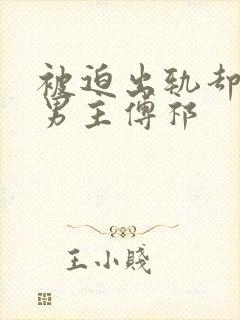 被迫出轨却
男主傅祁
王小賤